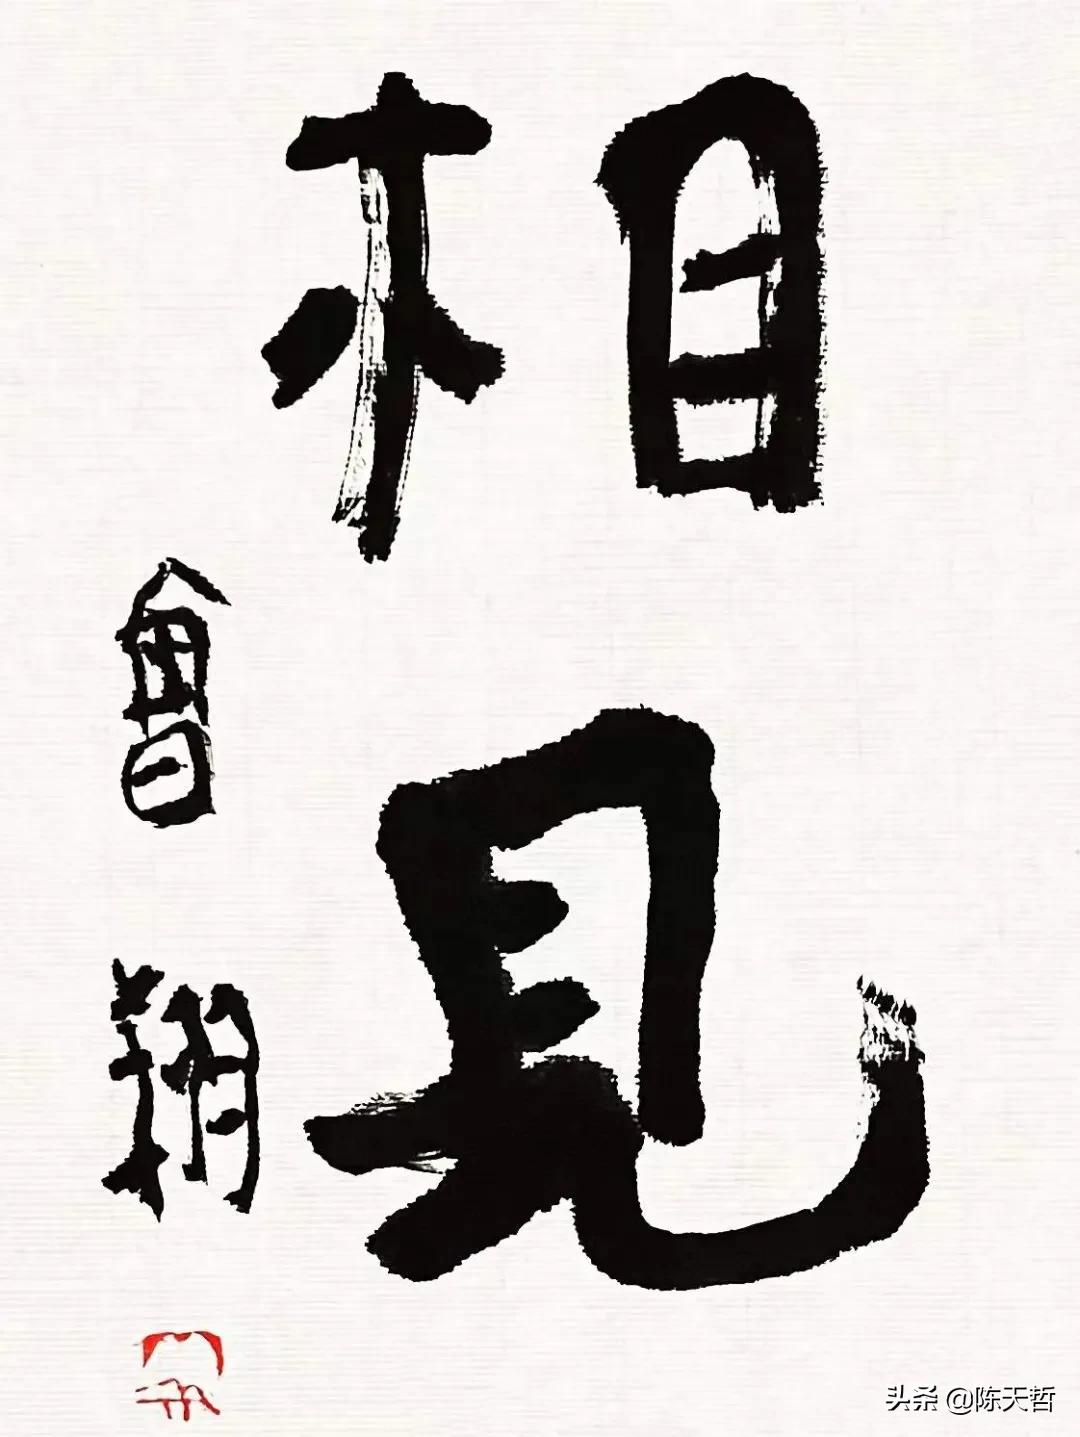 相見
會翔
头条 @陈天哲